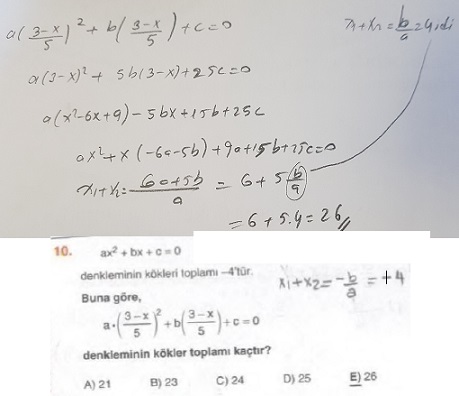 a(3-x/5)² + b(3-x/5) + c = 0
x₁ + x₂ = b/a = 4, idi
a(3-x)² + 5b(3-x) + 25c = 0
a(x²-6x+9) - 5bx + 15b + 25c
ax² + x(-6a-5b) + 9a + 15b + 25c = 0
x₁ + x₂ = 6a+5b/a = 6 + 5 b/a
= 6 + 5.4 = 26//
10. ax² + bx + c = 0
denkleminin kökleri toplamı –4'tür.
x₁ + x₂ = -b/a = +4
Buna göre,
a·(3-x/5)² + b(3-x/5) + c = 0
denkleminin kökler toplamı kaçtır?
A) 21 B) 23 C) 24 D) 25 E) 26